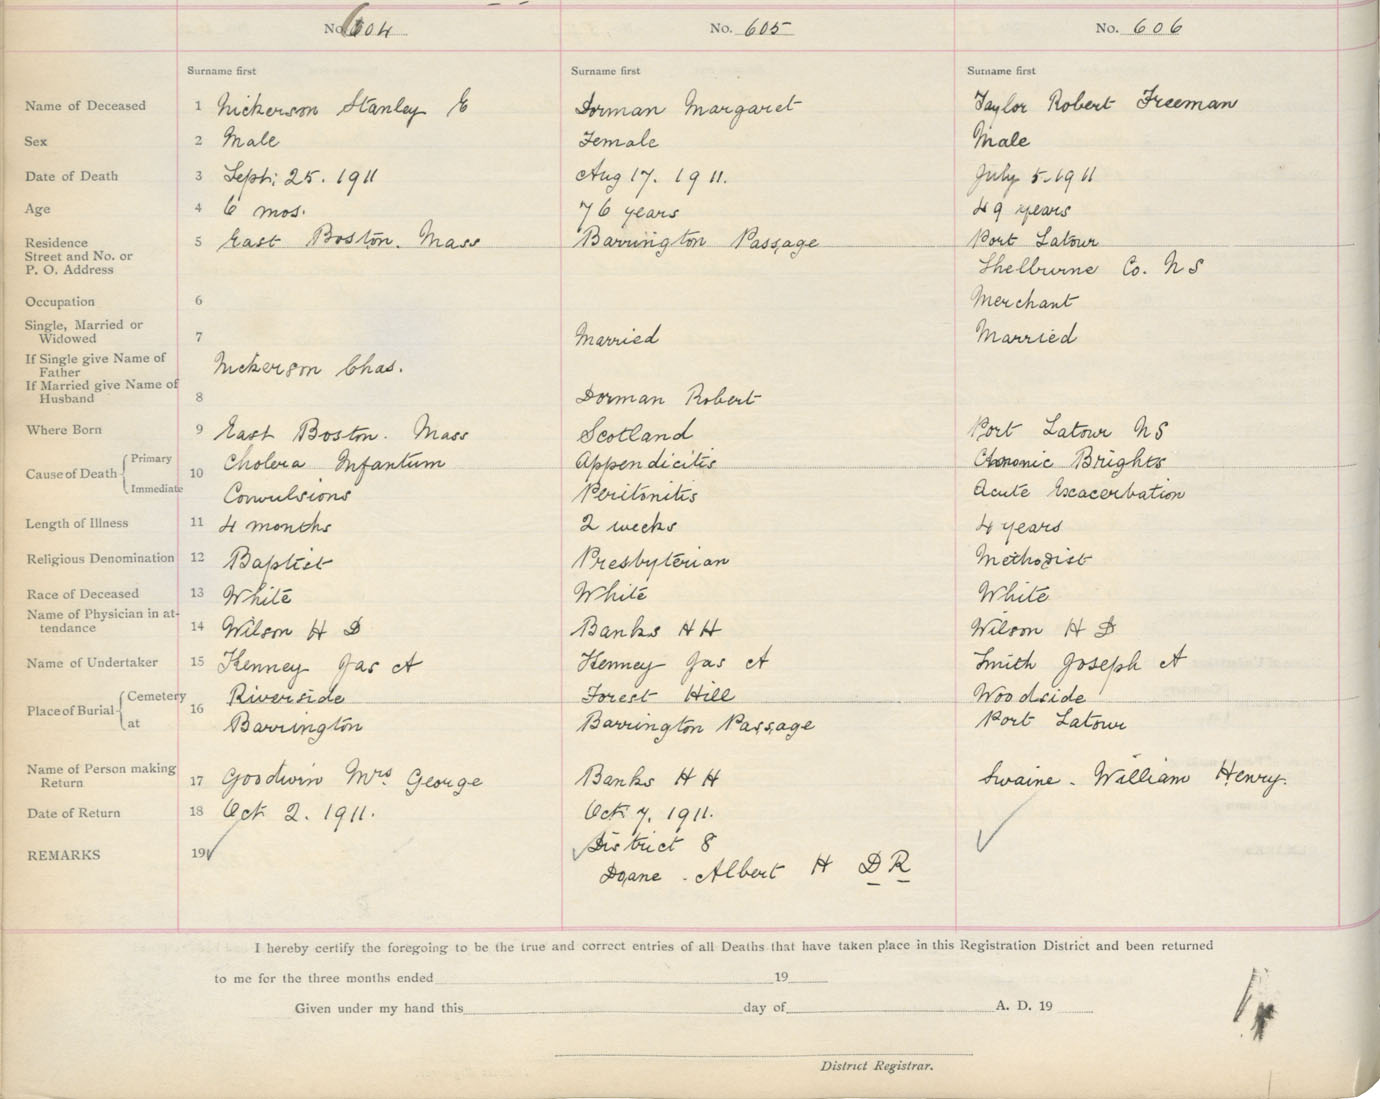 No. 604 No. 605 No. 606
Surname first Surname first Surname first
Name of Deceased 1 Nickerson Stanley E Dorman Margaret Taylor Robert Freeman
Sex 2 Male Female Male
Date of Death 3 Sept. 25. 1911 Aug 17. 1911. July 5-1911
Age 4 6 mos. 76 years 49 years
Residence 5 East Boston. Mass Barrington Passage Port Latour
Street and No. or
P. O. Address Shelburne Co. N S
Occupation 6 Merchant
Single, Married or
Widowed 7 Married Married
If Single give Name of
Father Nickerson Chas.
If Married give Name of
Husband 8 Dorman Robert
Where Born 9 East Boston. Mass Scotland Port Latour N S
Cause of Death Primary 10 Cholera Infantum Appendicitis Chronic Brights
Immediate Convulsions Peritonitis Acute Exacerbation
Length of Illness 11 4 months 2 weeks 4 years
Religious Denomination 12 Baptist Presbyterian Methodist
Race of Deceased 13 White White White
Name of Physician in at-
tendance 14 Wilson H D Banks H H Wilson H D
Name of Undertaker 15 Kenney Jas A Kenney Jas A Smith Joseph A
Place of Burial Cemetery 16 Riverside Forest Hill Woodside
at Barrington Barrington Passage Port Latour
Name of Person making
Return 17 Goodwin Mrs. George Banks H H Swaine. William Henry.
Date of Return 18 Oct 2. 1911. Oct 7. 1911.
REMARKS 19 District 8
Doane. Albert H D R
I hereby certify the foregoing to be the true and correct entries of all Deaths that have taken place in this Registration District and been returned
to me for the three months ended 19
Given under my hand this day of A. D. 19
District Registrar.